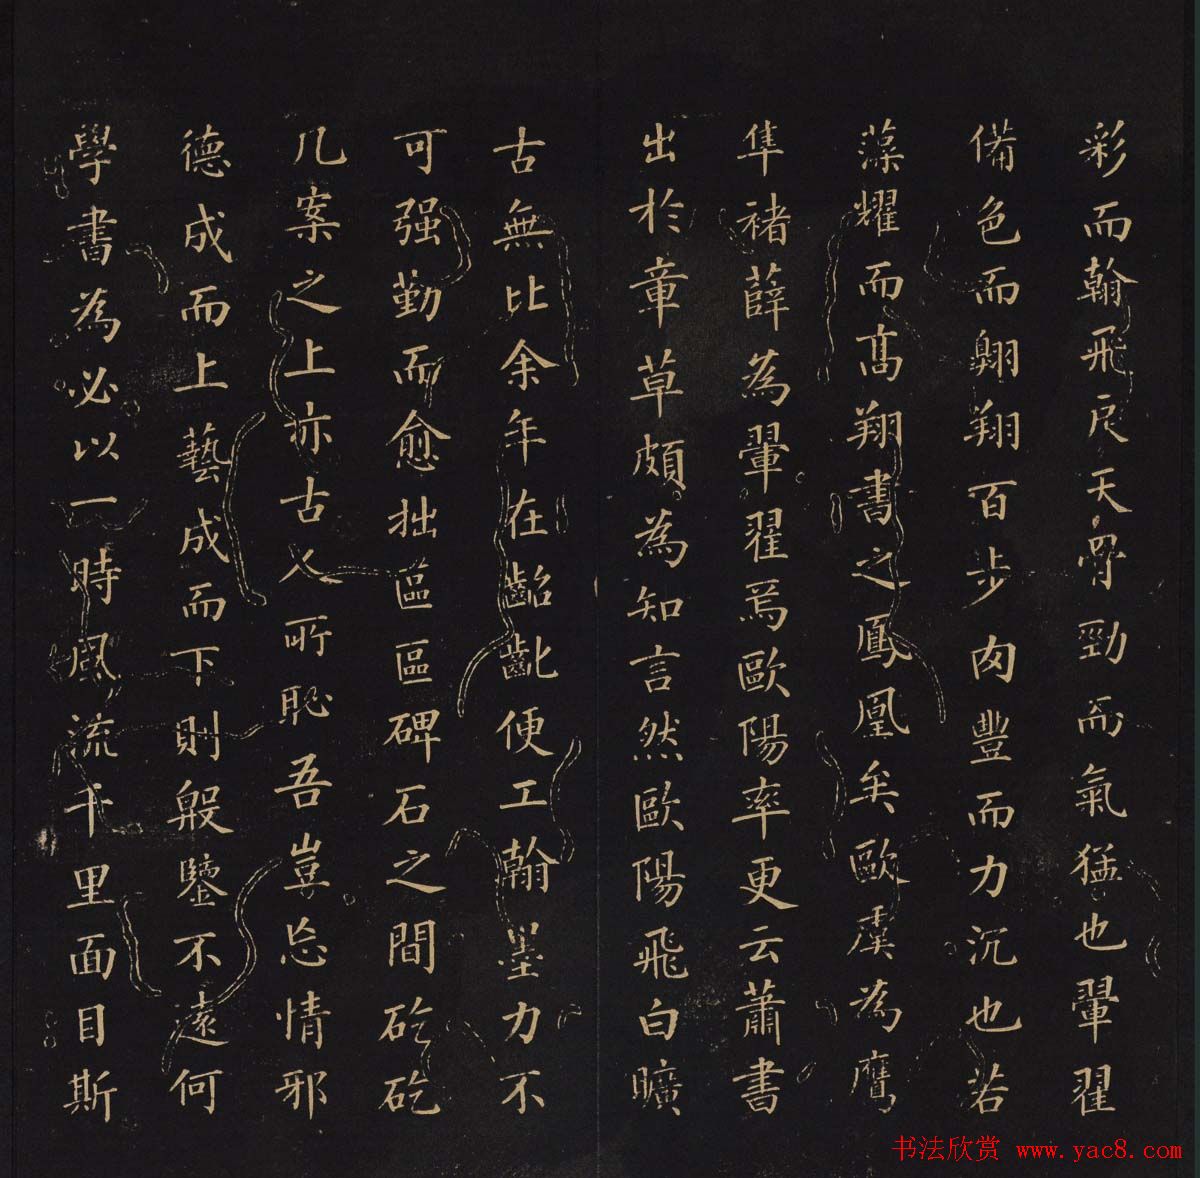 彩而翰飛戾天骨勁而氣猛也翬翟
備色而翺翔百步肉豐而力沉也若
藻耀而高翔書之鳳凰矣歐虞為鷹
隼褚薛為翬翟焉歐陽率更云蕭書
出於章草頗為知言然歐陽飛白曠
古無比余年在齠齔便工翰墨力不
可强勤而愈拙區區碑石之間矻矻
几案之上亦古人所恥吾豈忘情邪
德成而上藝成而下則殷鑒不遠何
學書為必以一時風流千里面目斯
书法欣赏 www.yac8.com